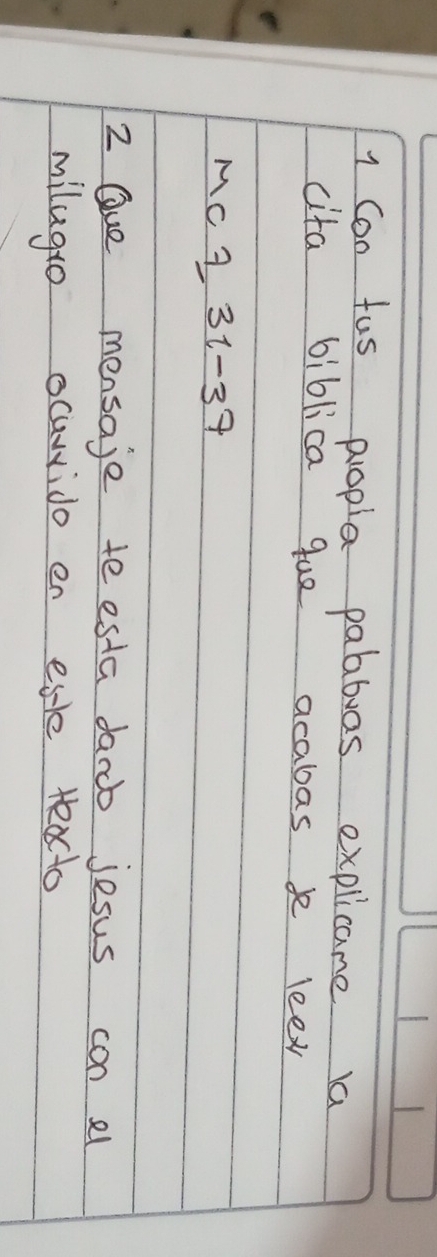 1 Con tus propia palabras explicame la
cita biblica que acabas de leer
Mc 7 31-37
2 Que mensaje te esta dando jesus con el
milagro ocurrido en este texto